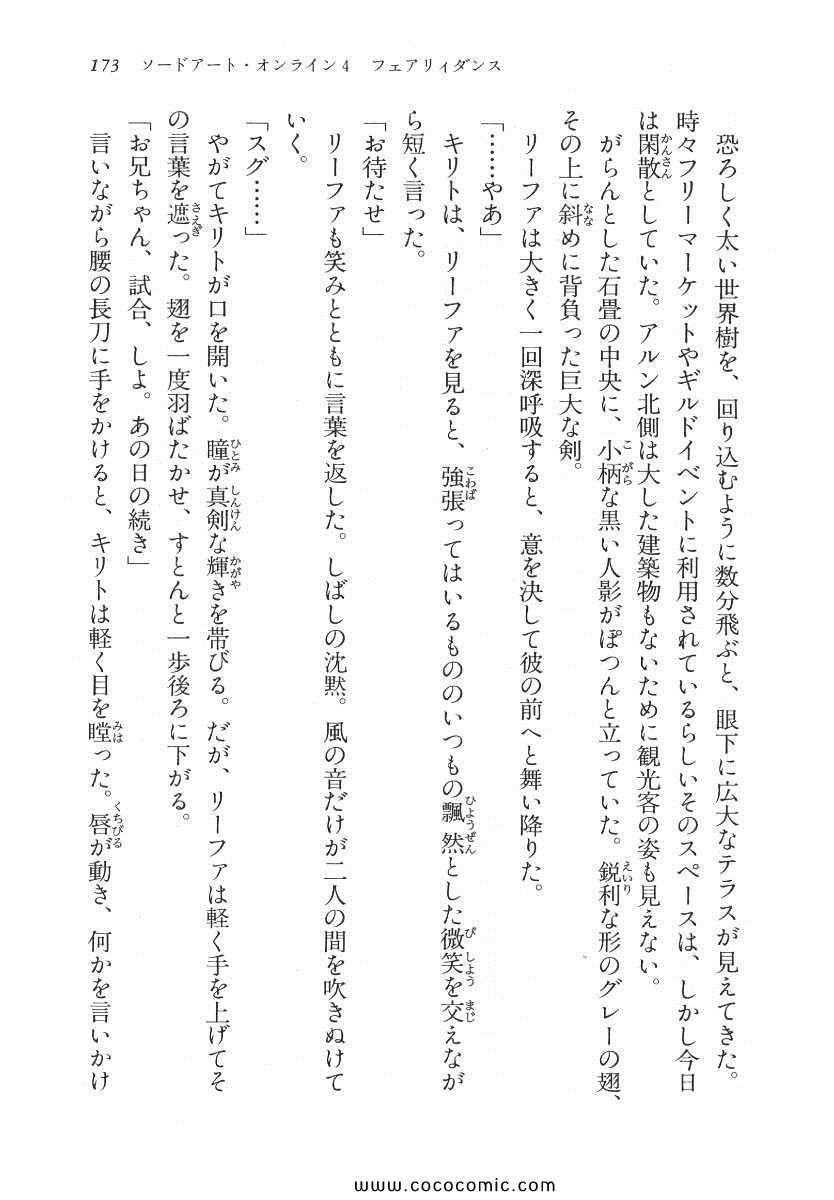 173 ソードアート・オンライン4 フェアリィダンス
恐ろしく太い世界樹を、回り込むように数分飛ぶと、眼下に広大なテラスが見えてきた。
時々フリーマーケットやギルドイベントに利用されているらしいそのスペースは、しかし今日
は閑散としていた。アルン北側は大した建築物もないために観光客の姿も見えない。
がらんとした石畳の中央に、小柄な黒い人影がぽつんと立っていた。鋭利な形のグレーの翅、
その上に斜めに背負った巨大な剣。
リーファは大きく一回深呼吸すると、意を決して彼の前へと舞い降りた。
「……やあ」
キリトは、リーファを見ると、強張ってはいるもののいつもの飄然とした微笑を交えなが
ら短く言った。
「お待たせ」
リーファも笑みとともに言葉を返した。しばしの沈黙。風の音だけが二人の間を吹きぬけて
いく。
「スグ……」
やがてキリトが口を開いた。瞳が真剣な輝きを帯びる。だが、リーファは軽く手を上げてそ
の言葉を遮った。翅を一度羽ばたかせ、すとんと一歩後ろに下がる。
「お兄ちゃん、試合、しよ。あの日の続き」
言いながら腰の長刀に手をかけると、キリトは軽く目を瞠った。唇が動き、何かを言いかけ
www.cococomic.com